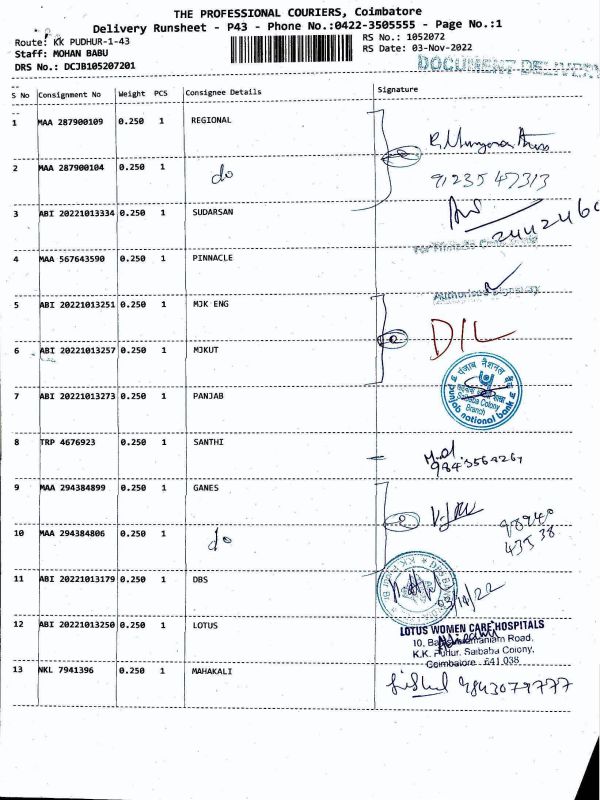 THE PROFESSIONAL COURIERS, Coimbatore
Delivery Runsheet - P43 - Phone No.:0422-3505555 - Page No.:1
Route: KK PUDHUR-1-43
RS No.: 1052072
Staff: MOHAN BABU
RS Date: 03-Nov-2022
DRS No.: DCJB105207201
DOCUMENT DELIVERY
S No Consignment No Weight PCS Consignee Details Signature
1 MAA 287900109 0.250 1 REGIONAL
2 MAA 287900104 0.250 1 do
91235 47313
3 ABI 20221013334 0.250 1 SUDARSAN
4 MAA 567643590 0.250 1 PINNACLE
Authorised Signatory
5 ABI 20221013251 0.250 1 MJK ENG
DIL
6 ABI 20221013257 0.250 1 MJKUT
7 ABI 20221013273 0.250 1 PANJAB
पंजाब नैशनल बैंक
Saibaba Colony
Branch
punjab national bank
8 TRP 4676923 0.250 1 SANTHI
9843564267
9 MAA 294384899 0.250 1 GANES
98940
43538
10 MAA 294384806 0.250 1 do
11 ABI 20221013179 0.250 1 DBS
12 ABI 20221013250 0.250 1 LOTUS
LOTUS WOMEN CARE HOSPITALS
Road,
K.K. Pudur, Saibaba Colony,
Coimbatore - 641 038
13 NKL 7941396 0.250 1 MAHAKALI
9843079777